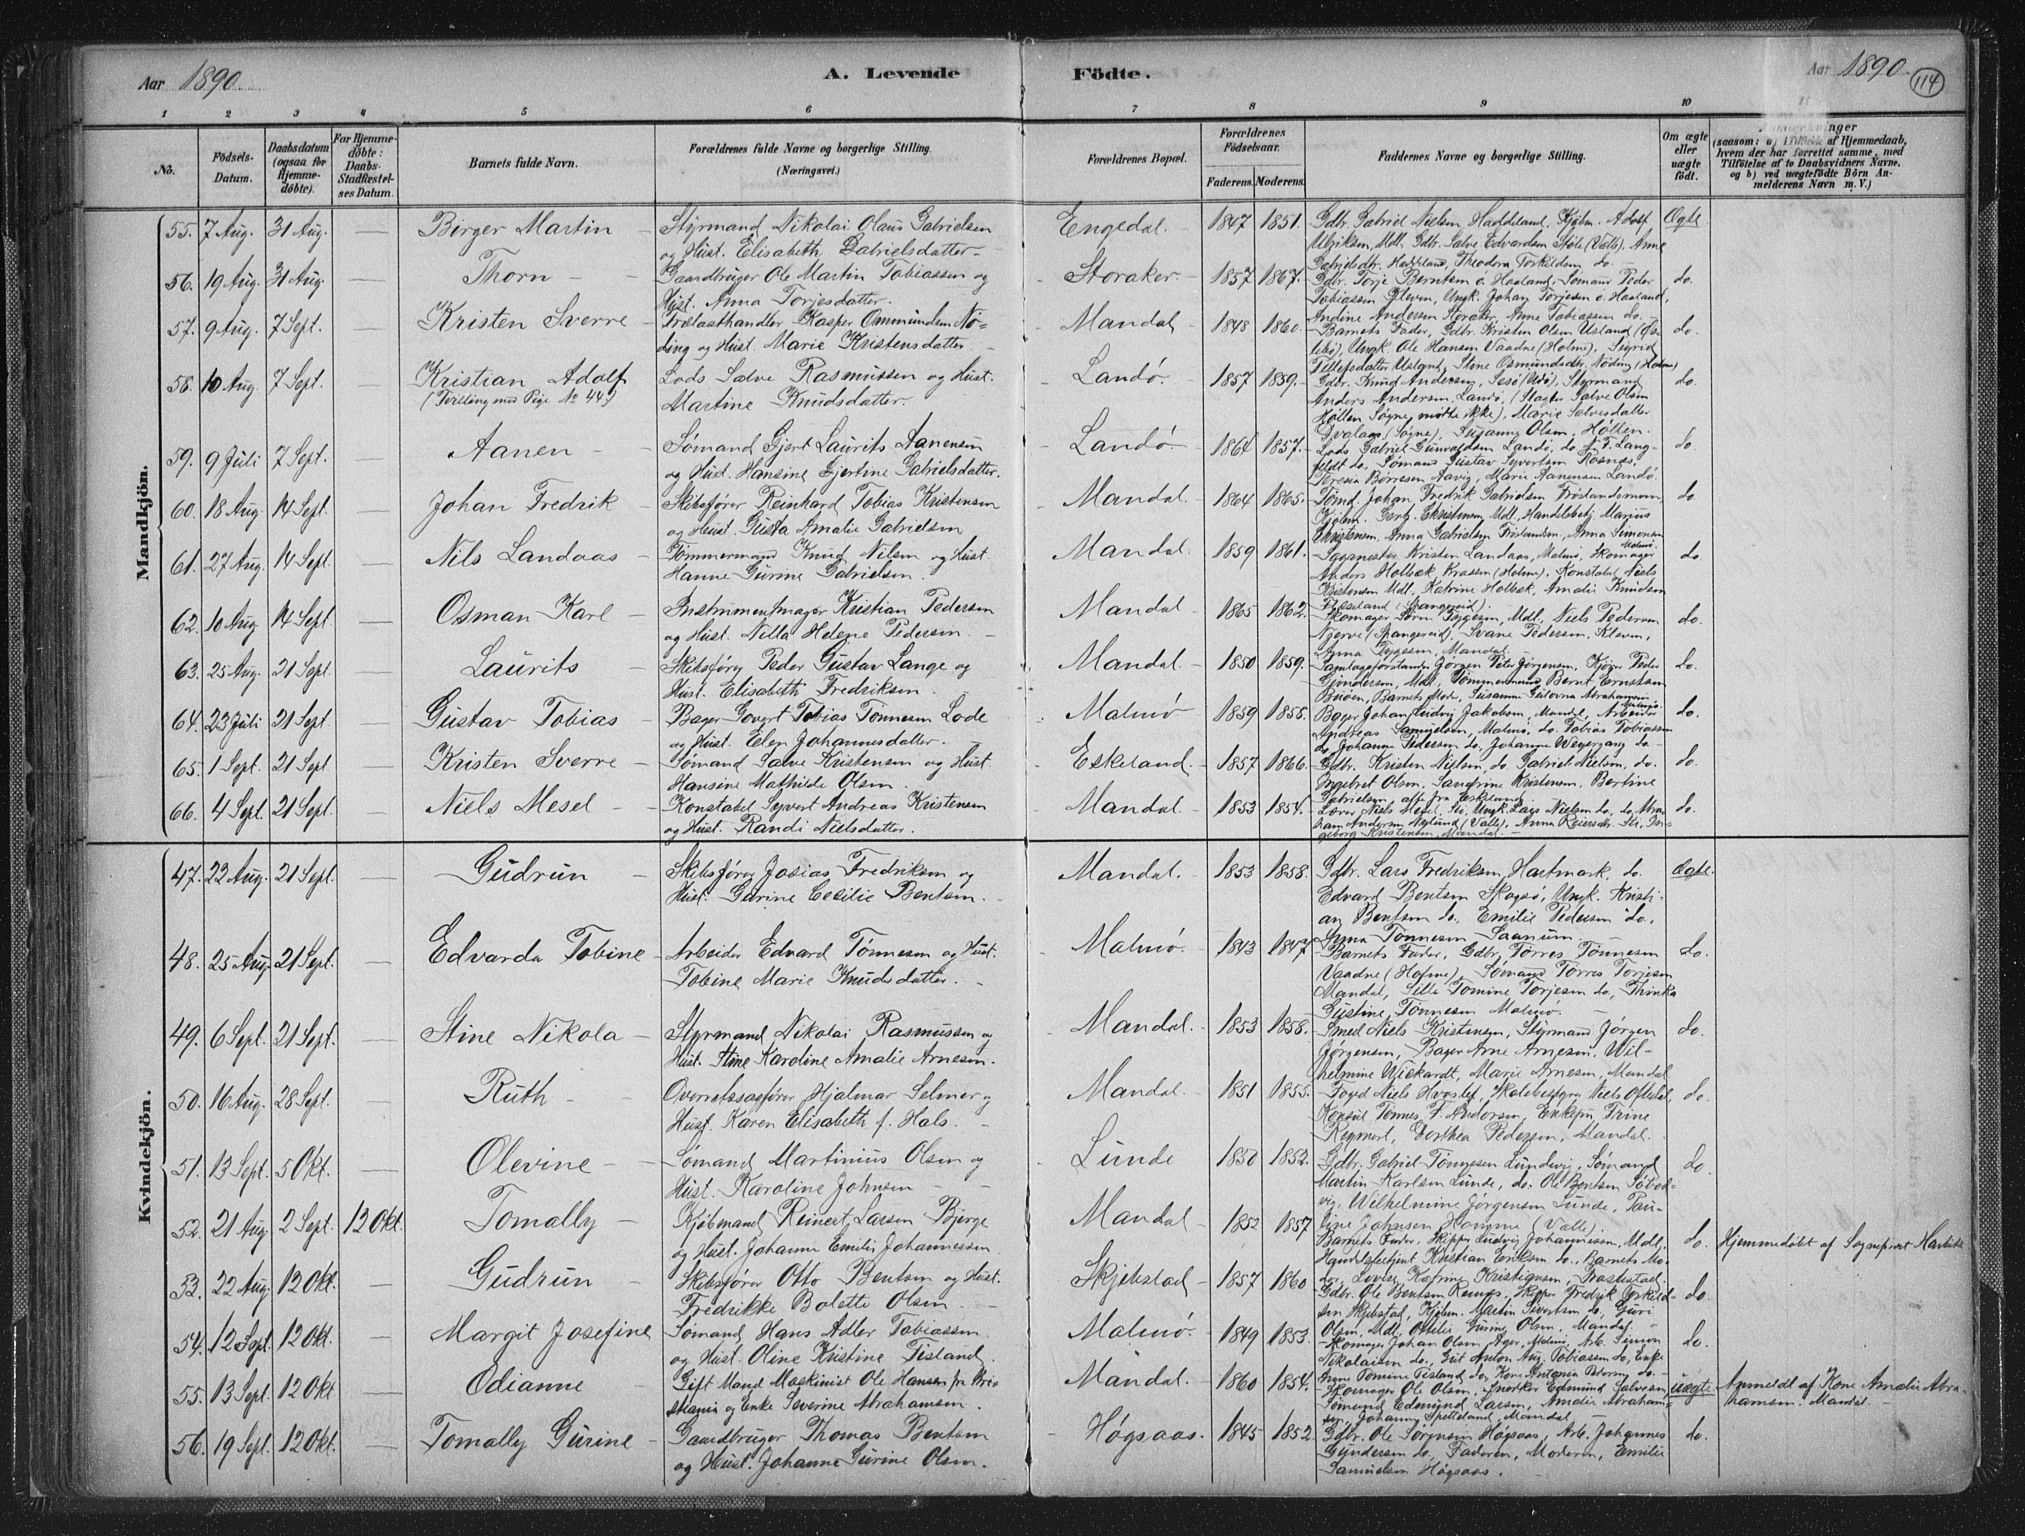 Aar 1890.
A. Levende
Födte.
Aar 1890
114
1 2 3 4 5 6 7 8 9 10 11
No.
Födsels-
Datum.
Daabsdatum
(ogsaa før
Hjemme-
døbte).
For Hjemme-
döbte:
Daabs
Stadfæstel-
ses Datum.
Barnets fulde Navn.
Forældrenes fulde Navne og borgerlige Stilling.
(Næringsvei.)
Forældrenes Bopæl.
Forældrenes
Födselsaar.
Faderens. Moderens.
Faddernes Navne og borgerlige Stilling.
Om ægte
eller
uægte
födt.
Anmerkninger
(saasom: a) Tilfælde af Hjemmedaab,
hvem der har forrettet samme, med
Tilföielse af to Daabsvidners Navne,
og b) ved uægtefödte Börn An-
melderens Navn m. V.)
Mandkjön.
55. 7 Aug. 31 Aug. — Børger Martin — Styrmand Nikolai Olaus Gabrielsen
og Hust. Elisabeth Gabrielsdatter —
Engedal. 1847 1851. Gdbr. Gabriel Nielsen Haddeland, Kjøbm. Adolf
Ulriksen, Mdl. Gdbr. Salve Edvardsen Støle (Valle), Anne
Gabrielsdtr. Haddeland, Theodora Torkildsen do. — Ægte
56. 19 Aug. 31 Aug. — Thorn — Gaardbruger Ole Martin Tobiassen og
Hust. Anna Torjesdatter.
Storaker. 1857 1867. Gdbr. Torje Berntsen ø. Haaland, Sømand Peder
Tobiassen Kleven, Ungk. Johan Torjesen ø. Haaland,
Andine Andersen Storaker, Anne Tobiassen do. — do.
57. 9 Aug. 7 Sept. — Kristen Sverre — Trælasthandler Kasper Ommundsen Nø-
ding og Hust. Marie Kristensdatter —
Mandal 1848 1860. Barnets Fader, Gdbr. Kristen Olsen Usland (Øs-
lebø), Ungk. Ole Hansen Vaadne (Holme), Sigrid
Tellefsdatter Usland, Stine Osmundsdtr. Nøding (Holme) do.
58. 10 Aug. 7 Sept. — Kristian Adolf
(Tvilling med Pige No 44.)
Lods Salve Rasmussen og Hust.
Martine Knudsdatter.
Landø. 1857 1859. Gdbr. Knud Andersen, Sesø (Udø), Styrmand
Anders Andersen Landø, (Stager Salve Olsen
Holten Søgne, mødte ikke), Marie Salvesdatter
(Søgne), Susanne Olsen, Holten. do.
59. 9 Juli 7 Sept. — Aanen — Sømand Gjert Laurits Aanensen
og Hust. Hansine Gjertine Gabrielsdatter.
Landø. 1864 1857. Lods Gabriel Gunvaldsen Landø, do N. F. Lang-
feldt do. Sømand Gustav Syvertsen Rosnes,
Teresia Børresen Aavig, Marie Aanensen Landø. do
60. 18 Aug. 14 Sept. — Johan Fredrik — Skibsfører Reinhard Tobias Kristensen
og Hust. Gusta Amalie Gabrielsen
Mandal. 1864 1865. Tømd. Johan Fredrik Gabrielsen
Kjøbm. Christensen Mdl. Handelsbetj. Marius
Christensen, Anna Gabrielsen Anna Simonsen do
61. 27 Aug. 14 Sept. — Nils Landaas — Tømmermand Knud Nilsen og Hust
Hanne Gurine Gabrielsen.
Mandal. 1859 1861. Kristen Landaas, Malmø, Skomager
Anders Holbæk Krossen (Holme), Konstabel Niels
Kristensen Mdl. Katrine Holbæk, Amalie Knudsen
(Spangereid). do
62. 10 Aug 14 Sept — Osman Karl — Instrumentmager Kristian Pedersen
og Hust. Nilla Helene Pedersen.
Mandal. 1865 1862. Skomager Sørn Tøgesen, Mdl. Niels Pedersen
Njerve (Spangereid), Svane Pedersen, Kleven,
Anna Tøgesen, Mandal. do.
63. 25 Aug. 21 Sept. — Laurits — Skibsførg Peder Gustav Lange og
Hust. Elisabeth Fredriksen.
Mandal. 1850 1859. Samlagsforstander Jørgen Peter Jørgensen, Kjøpm Peder
Gundersen, Mdl, Tømmermand Bernt Ernstsen
Barnets Moder, Susanne Abrahamsen do.
64. 23 Juli 21 Sept. — Gustav Tobias — Bager Govert Tobias Tønnesen Lode
og Hust. Elen Johannesdatter.
Malmø 1859 1855. Bager Johan Ludvig Jakobsen, Mandal, Arbeider
Andreas Samuelsen, Malmø, do. Tobias Tobiassen
do, Johanne Pedersen do, Johanne Wegergang do do.
65. 1 Sept. 21 Sept. — Kristen Sverre — Sømand Salve Kristensen og Hust
Hansine Mathilde Olsen.
Eskeland. 1857 1866. Gdbr. Kristen Nielsen, do. Gabriel Nielsen, do.
Ingebret Olsen, Sandrine Kristensen, Bertine
Gabrielsen, alle fra Eskeland do.
66. 4 Sept. 21 Sept. — Niels Mesel — Konstabel Syvert Andreas Kristensen
og Hust. Randi Nielsdatter.
Mandal 1853 1854. Lærer Niels Mesel, Ungk. Lars Nielsen do, do. Abra-
ham Andersen Nylund (Valle), Anna Reiersdtr. In-
geborg Kristensen, Mandal. — do.
Kvindekjön.
47. 22 Aug. 21 Sept. — Gudrun — Skibsførg Josias Fredriksen og
Hust. Gurine Cecilie Bentsen.
Mandal. 1853 1858. Gdbr. Lars Fredriksen, Hartmark, do.
Edvard Bentsen Skogsø, Ungk. Kristi-
an Bentsen do, Emilie Pedersen do,
Anna Tønnesen Saanum. Ægte.
48. 25 Aug. 21 Sept. — Edvarda Tobine — Arbeider Edvard Tønnesen og Hust.
Tobine Marie Knudsdatter.
Malmø. 1843 1847 Barnets Fader, Gdbr. Tørres Tønnesen
Vaadne (Holme), Sømand Tørres Torjesen
Mandal, Sille Tomine Torjesen do, Thrinka
Gustine Tønnesen Malmø. do.
49. 6 Sept. 21 Sept. — Stine Nikola — Styrmand Nikolai Rasmussen og
Hust. Stine Karoline Amalie Arnesen.
Mandal. 1853 1858. Smed Niels Kristensen, Styrmand Jørgen
Jørgensen, Bager Arne Arnesen, Wil-
helmine Wickardt, Marie Arnesen, Mandal do.
50. 16 Aug. 28 Sept. — Ruth — Overretssagfører Hjalmar Selmer og
Hust. Karen Elisabeth f. Hals.
Mandal 1851 1855. Foged Niels Hvoslef, Skolebestyrer Niels Oftedal,
Konsul Tønnes F. Andersen, Enkefru Trine
Reymert, Dorthea Pedersen, Mandal. do.
51. 13 Sept. 5 Okt. — Olevine — Sømand Martinius Olsen og
Hust. Karoline Johnsen —
Lunde 1850 1852. Gdbr. Gabriel Tønnesen Lundevig, Sømand
Martin Karlsen Lunde, do. Ole Bentsen
vig, Wilhelmine Jørgensen Lunde, Pau-
line Johnsen Homme (Valle). do.
52. 21 Aug. 2 Sept. 12 Okt. Tomally — Kjøbmand Reinert Larsen Bjerge
og Hust. Johanne Emilie Johannessen
Mandal 1852 1857 Barnets Fader, Skipper Ludvig Johannessen, Mdl,
Handelsbetjent Kristian Eriksen do, Barnets Mo-
der, Lovise Katrine Kristiansen, do. Hjemmedøbt af Sogneprest
53. 22 Aug. 12 Okt. — Gudrun — Skibsfører Otto Bentsen og Hust.
Fredrikke Bolette Olsen.
Skjebstad 1857 1860 Gdbr. Ole Bentsen Skipper Fredrik Torkild-
sen Skjebstad, Kjøbm. Martin Sivertsen do. Guri
Olsen, Mdl, Ottilie Gurine Olsen, Mandal — do.
54. 12 Sept. 12 Okt. — Margit Josefine Sømand Hans Adler Tobiassen
og Hust. Oline Kristine Tisland.
Malmø. 1849 1853. Skomager Johan Olsen, Malmø, Arb. Simon
Nikolaisen do, Anton Aug. Tobiassen do, Enke
Anne Tomine Tisland do, Kone Antonia Petersen do. do.
55. 13 Sept. 12 Okt — Odianne Gift Mand Maskinist Ole Hansen fr. Kri-
stiania og Enke Severine Abrahamsen.
Mandal. 1860 1854. Skomager Ole Olsen, Snedker Edmund Salvesen
Sømand Edmund Larsen, Amalie Abraham-
sen, Johanne Spetteland, Mandal — uægte Anmeldt af Kone Amalie Abra-
hamsen. Mandal.
56. 19 Sept. 12 Okt. — Tomally Gurine — Gaardbruger Thomas Bentsen
og Hust. Johanne Gurine Olsen.
Høgsaas. 1845 1852. Gdbr. Ole Sørensen Høgsaas, Arb. Johannes
Gundersen do, Faderen, Moderen, Emilie
Samuelsen Høgsaas. do.